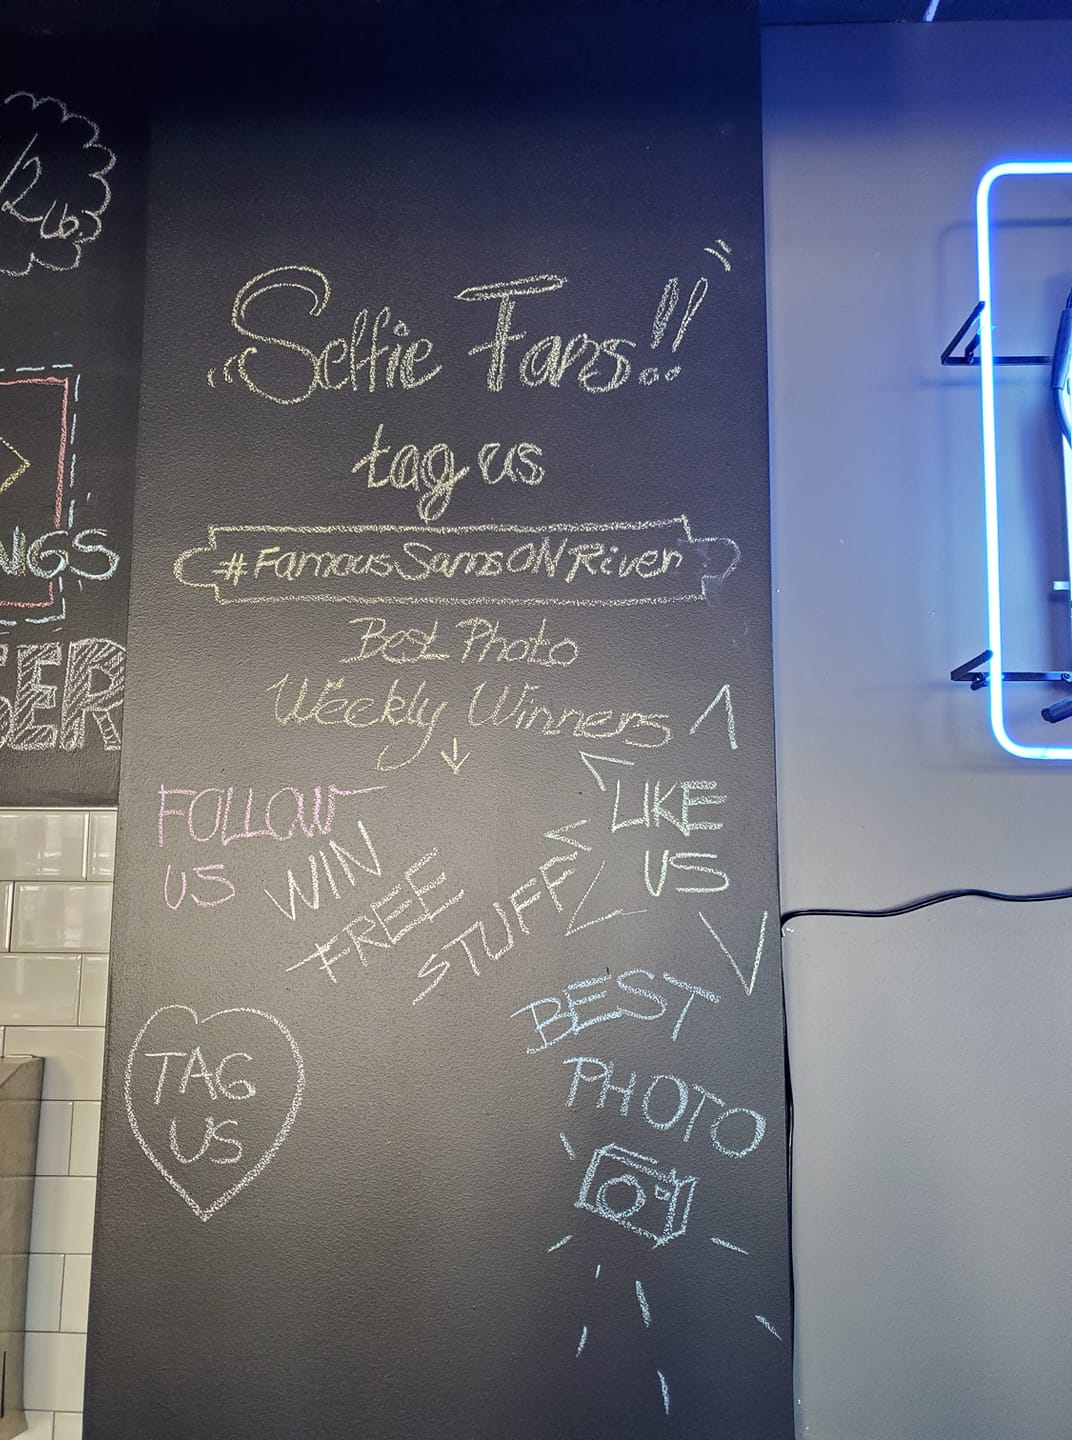 1/2 lb.
NGS
GER
Selfie Fans!!
tag us
#FamousSamsONRiver
Best Photo
Weekly Winners
FOLLOW
US
WIN
FREE
STUFF
LIKE
US
BEST
PHOTO
TAG
US